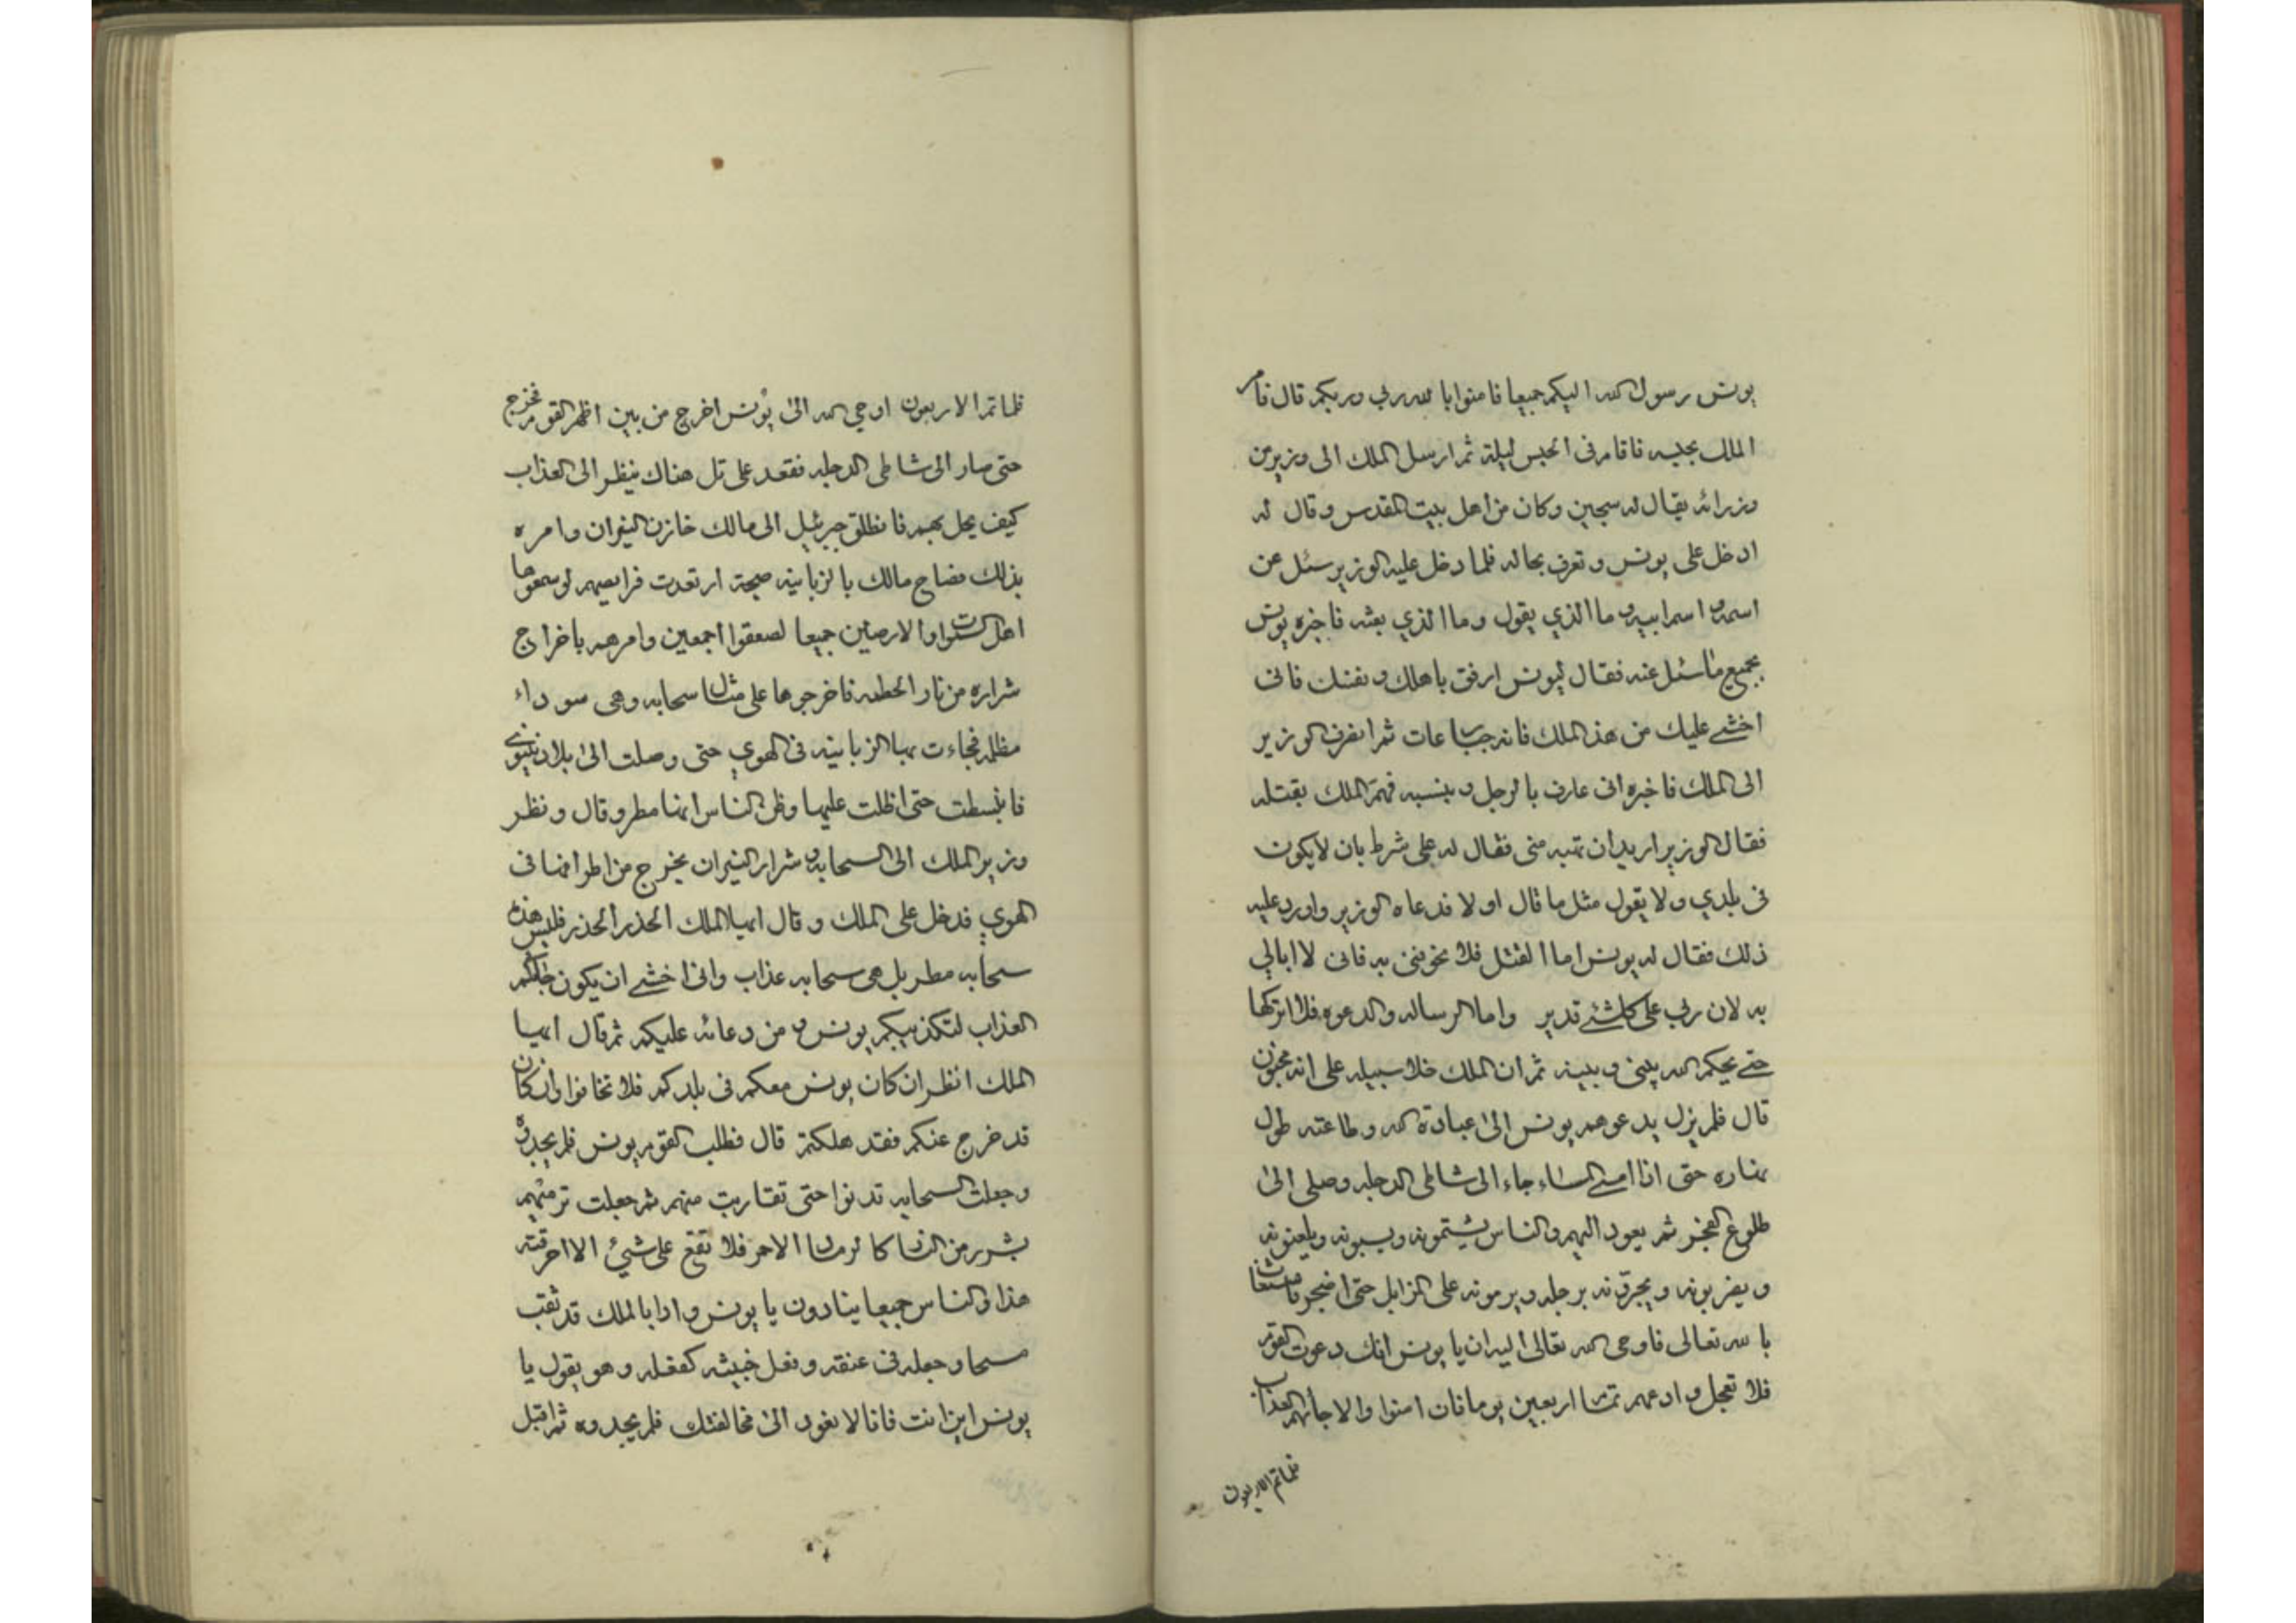 يونس رسول الله اليكم جميعا فامنوا بالله ربي وربكم قال فامر
الملك بحبسه فاقام في الحبس ليلة ثم ارسل الملك الى وزير من
وزرائه يقال له سجين وكان من اهل بيت المقدس وقال له
ادخل على يونس وتعرف بحاله فلما دخل عليه الوزير سئل عن
اسمه واسم ابيه وما الذي يقول وما الذي بعثه فاخبره يونس
بجميع ما سئل عنه فقال ليونس ارفق باهلك ونفسك فاني
اخشى عليك من هذا الملك فانه جبار عات ثم انصرف الوزير
الى الملك فاخبره اني عارف بالرجل وبنسبه فهم الملك بقتله
فقال الوزير اريد ان تهبه مني فقال له على شرط بان لا يكون
في بلدي ولا يقول مثل ما قال اولا فدعاه الوزير واورد عليه
ذلك فقال له يونس اما القتل فلا تخوفني به فاني لا ابالي
به لان ربي على كل شئ قدير واما الرساله والدعوه فلا اتركها
حتى يحكم الله بيني وبينه ثم ان الملك خلا سبيله على انه مجنون
قال فلم يزل يدعوهم يونس الى عبادة الله وطاعته طول
نهاره حتى اذا امسى المساء جاء الى شاطى الدجله وصلى الى
طلوع الفجر ثم يعود اليهم والناس يشتمونه ويسبونه ويلعنونه
ويضربونه ويجرونه برجله ويرمونه على المزابل حتى اضجر فاستغاث
بالله تعالى فاوحى الله تعالى اليه ان يا يونس انك دعوت القوم
فلا تعجل وادعهم تمام اربعين يوما فان امنوا والا جائهم العذاب
فلما تم الاربعون
فلما تم الاربعون اوحي الله الى يونس اخرج من بين اظهر القوم فخرج
حتى صار الى شاطى الدجله فقعد على تل هناك ينظر الى العذاب
كيف يحل بهم فانطلق جبرئيل الى مالك خازن النيران وامره
بذلك فصاح مالك بالزبانيه صيحة ارتعدت فرايصهم لو سمعوها
اهل السموات والارضين جميعا لصعقوا اجمعين وامرهم باخراج
شراره من نار الحطمه فاخرجوها على مثل سحابه وهى سوداء
مظلمه فجاءت بها الزبانيه في الهوي حتى وصلت الى بلاد نينوى
فانبسطت حتى اظلت عليها وظن الناس انها مطر وقال ونظر
وزير الملك الى السحابه وشرار النيران يخرج من اطرافها في
الهوي فدخل على الملك وقال ايها الملك الحذر الحذر فليس هذه
سحابه مطر بل هى سحابه عذاب واني اخشى ان يكون جائكم
العذاب لتكذيبكم يونس ومن دعائه عليكم ثم قال ايها
الملك انظر ان كان يونس معكم في بلدكم فلا تخافوا وان كان
قد خرج عنكم فقد هلكتم قال فطلب القوم يونس فلم يجدوه
وجعلت السحابه تدنوا حتى تقاربت منهم ثم جعلت ترميهم
بشرر من النار كالرماد الاحمر فلا تقع على شيئ الا احرقته
هذا والناس جميعا ينادون يا يونس واذا بالملك قد ثقب
مسحا وجعله في عنقه وفعل كفعله وهو يقول يا
يونس اين انت فانا لا نعود الى مخالفتك فلم يجدوه ثم اقبل